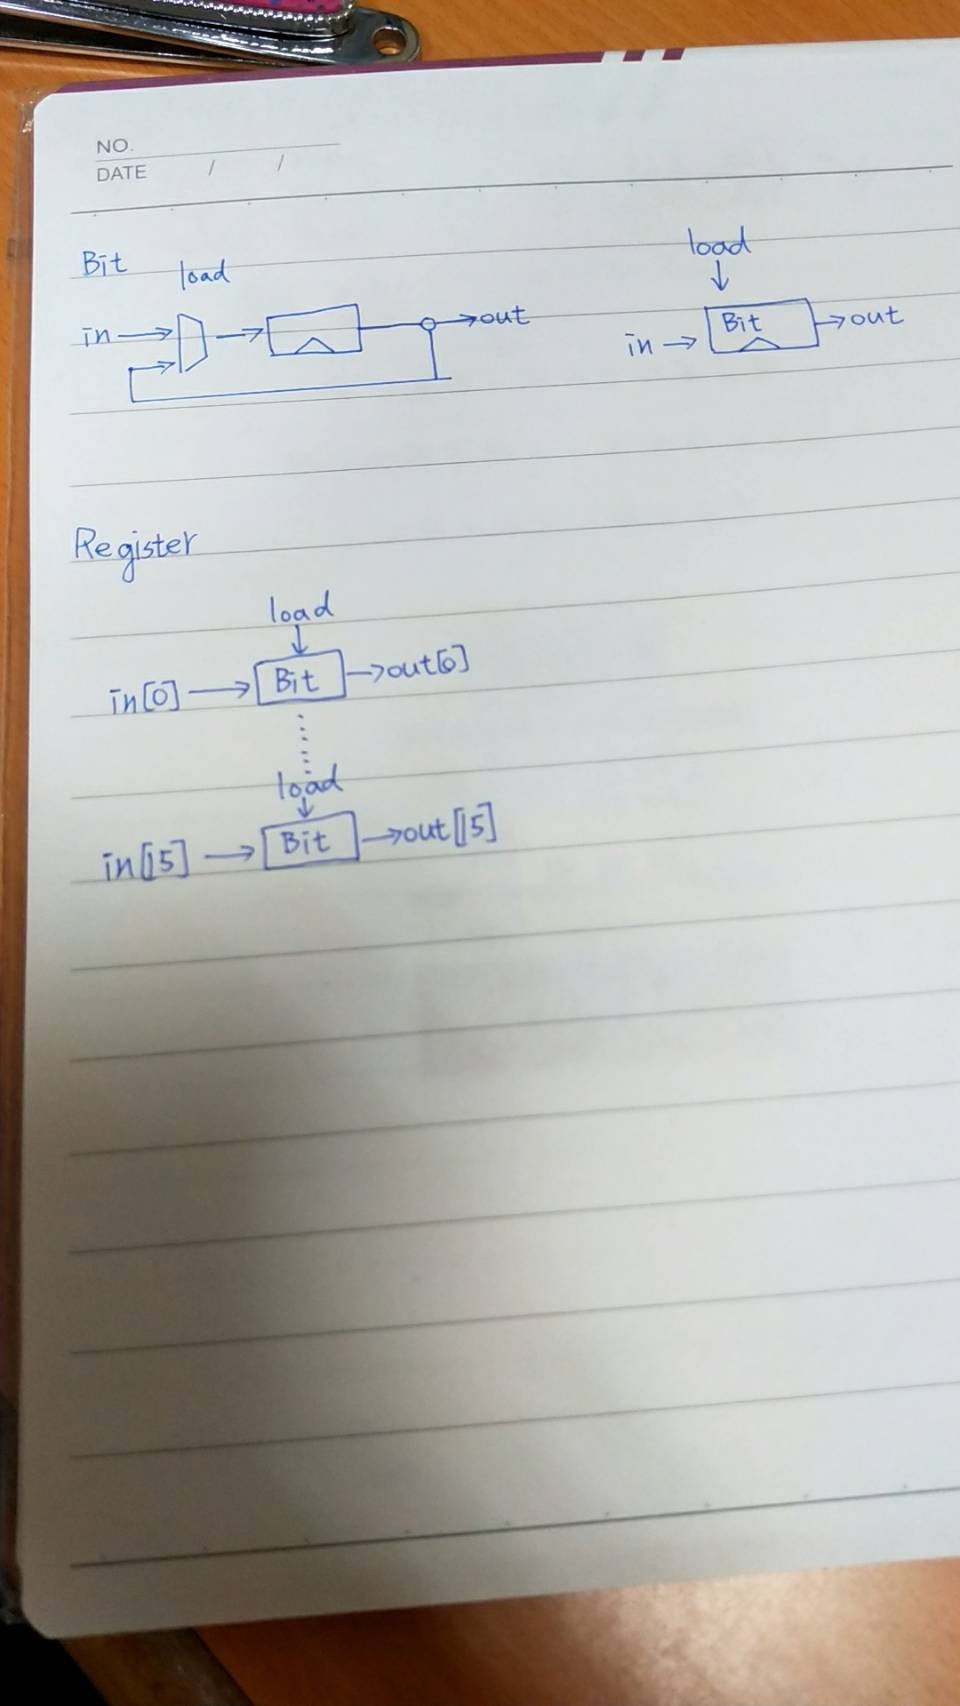 NO.
DATE / /
Bit
load
in
out
load
in
Bit
out
Register
load
in[0]
Bit
out[0]
load
in[15]
Bit
out[15]